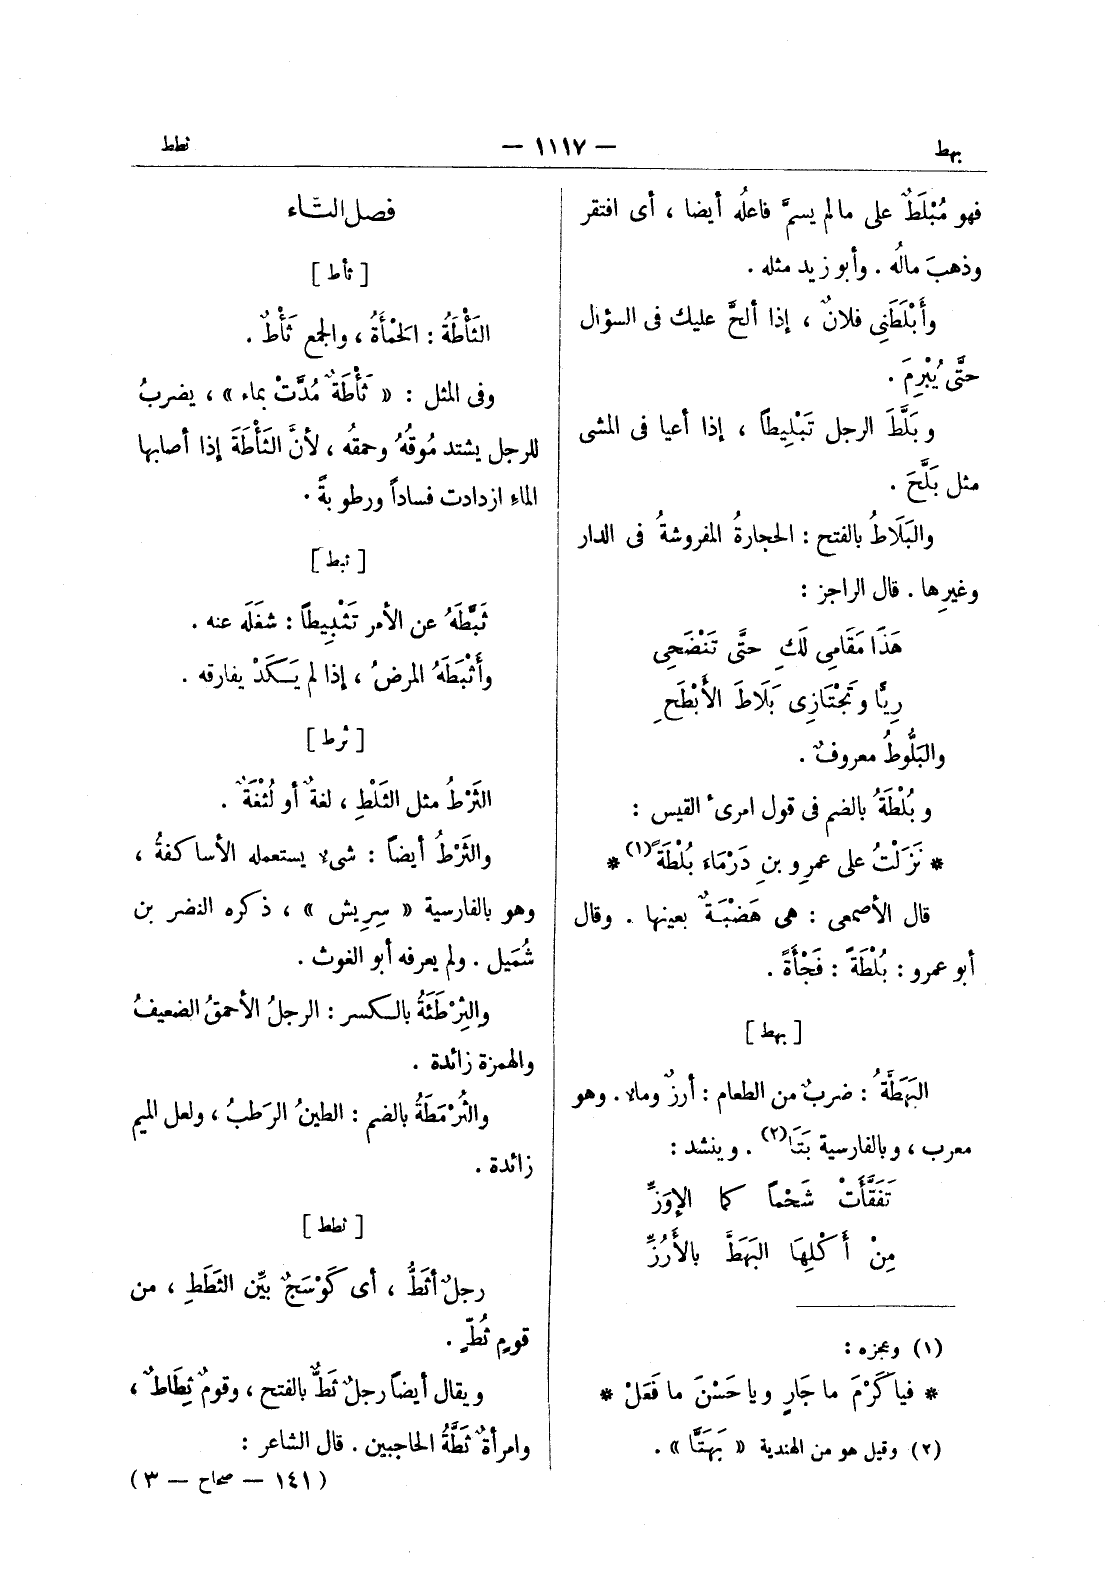 بهط
— ١١١٧ —
ثطط
فهو مُبْلَطٌ على مالم يسمَّ فاعلُه أيضا ، أى افتقر
وذهبَ مالُه . وأبو زيد مثله .
وأَبْلَطَنِى فلانٌ ، إذا ألحَّ عليك فى السؤال
حتَّى يُبْرِمَ .
وبَلَّطَ الرجل تَبْلِيطاً ، إذا أعيا فى المشى
مثل بَلَّحَ .
والبَلَاطُ بالفتح : الحجارةُ المفروشةُ فى الدار
وغيرِها . قال الراجز :
هَذَا مَقَامِى لَكِ حتَّى تَنْضَحِى
رِيًّا وتَجْتَازِى بَلَاطَ الأَبْطَحِ
والبَلُّوطُ معروفٌ .
وبُلْطَةُ بالضم فى قول امرىء القيس :
* نَزَلْتُ على عمرِو بنِ دَرْمَاء بُلْطَةً (١) *
قال الأصمعى : هى هَضْبَةٌ بعينها . وقال
أبو عمرو : بُلْطَةً : فَجْأَةً .
[ بهط ]
البَهَطَّةُ : ضربٌ من الطعام : أرزٌ وماء . وهو
معرب ، وبالفارسية بَتَا (٢) . وينشد :
تَفَقَّأَتْ شَحْماً كما الإوَزِّ
مِنْ أَكْلِهَا البَهَطَّ بالأَرُزِّ
(١) وعجزه :
* فيا كَرْمَ ما جَارٍ ويا حَسْنَ ما فَعَلْ *
(٢) وقيل هو من الهندية « بَهَتَّا » .
فصل الثَّاء
[ ثأط ]
الثَأْطَةُ : الحَمْأَةُ ، والجمع ثَأْطٌ .
وفى المثل : « ثَأْطَةٌ مُدَّتْ بماء » ، يضربُ
للرجل يشتد مُوقُهُ وحمقُه ، لأنَّ الثَأْطَةَ إذا أصابها
الماء ازدادت فساداً ورطوبةً .
[ ثبط ]
ثَبَّطَهُ عن الأمر تَثْبِيطاً : شغَلَه عنه .
وأَثْبَطَهُ المرضُ ، إذا لم يَكَدْ يفارقه .
[ ثرط ]
الثَرْطُ مثل الثَلْطِ ، لغةٌ أو لُثْغَةٌ .
والثَرْطُ أيضاً : شىء يستعمله الأساكفةُ ،
وهو بالفارسية « سِرِيش » ، ذكره النضر بن
شُمَيل . ولم يعرفه أبو الغوث .
والثِرْطَئَةُ بالكسر : الرجلُ الأحمقُ الضعيفُ
والهمزة زائدة .
والثُرْمَطَةُ بالضم : الطينُ الرَطبُ ، ولعل الميم
زائدة .
[ ثطط ]
رجلٌ أثَطُّ ، أى كَوْسَجٌ بيِّن الثَطَطِ ، من
قومٍ ثُطٍّ .
ويقال أيضاً رجلٌ ثَطٌّ بالفتح ، وقومٌ ثِطَاطٌ ،
وامرأةٌ ثَطَّةُ الحاجبين . قال الشاعر :
(١٤١ — صحاح — ٣)